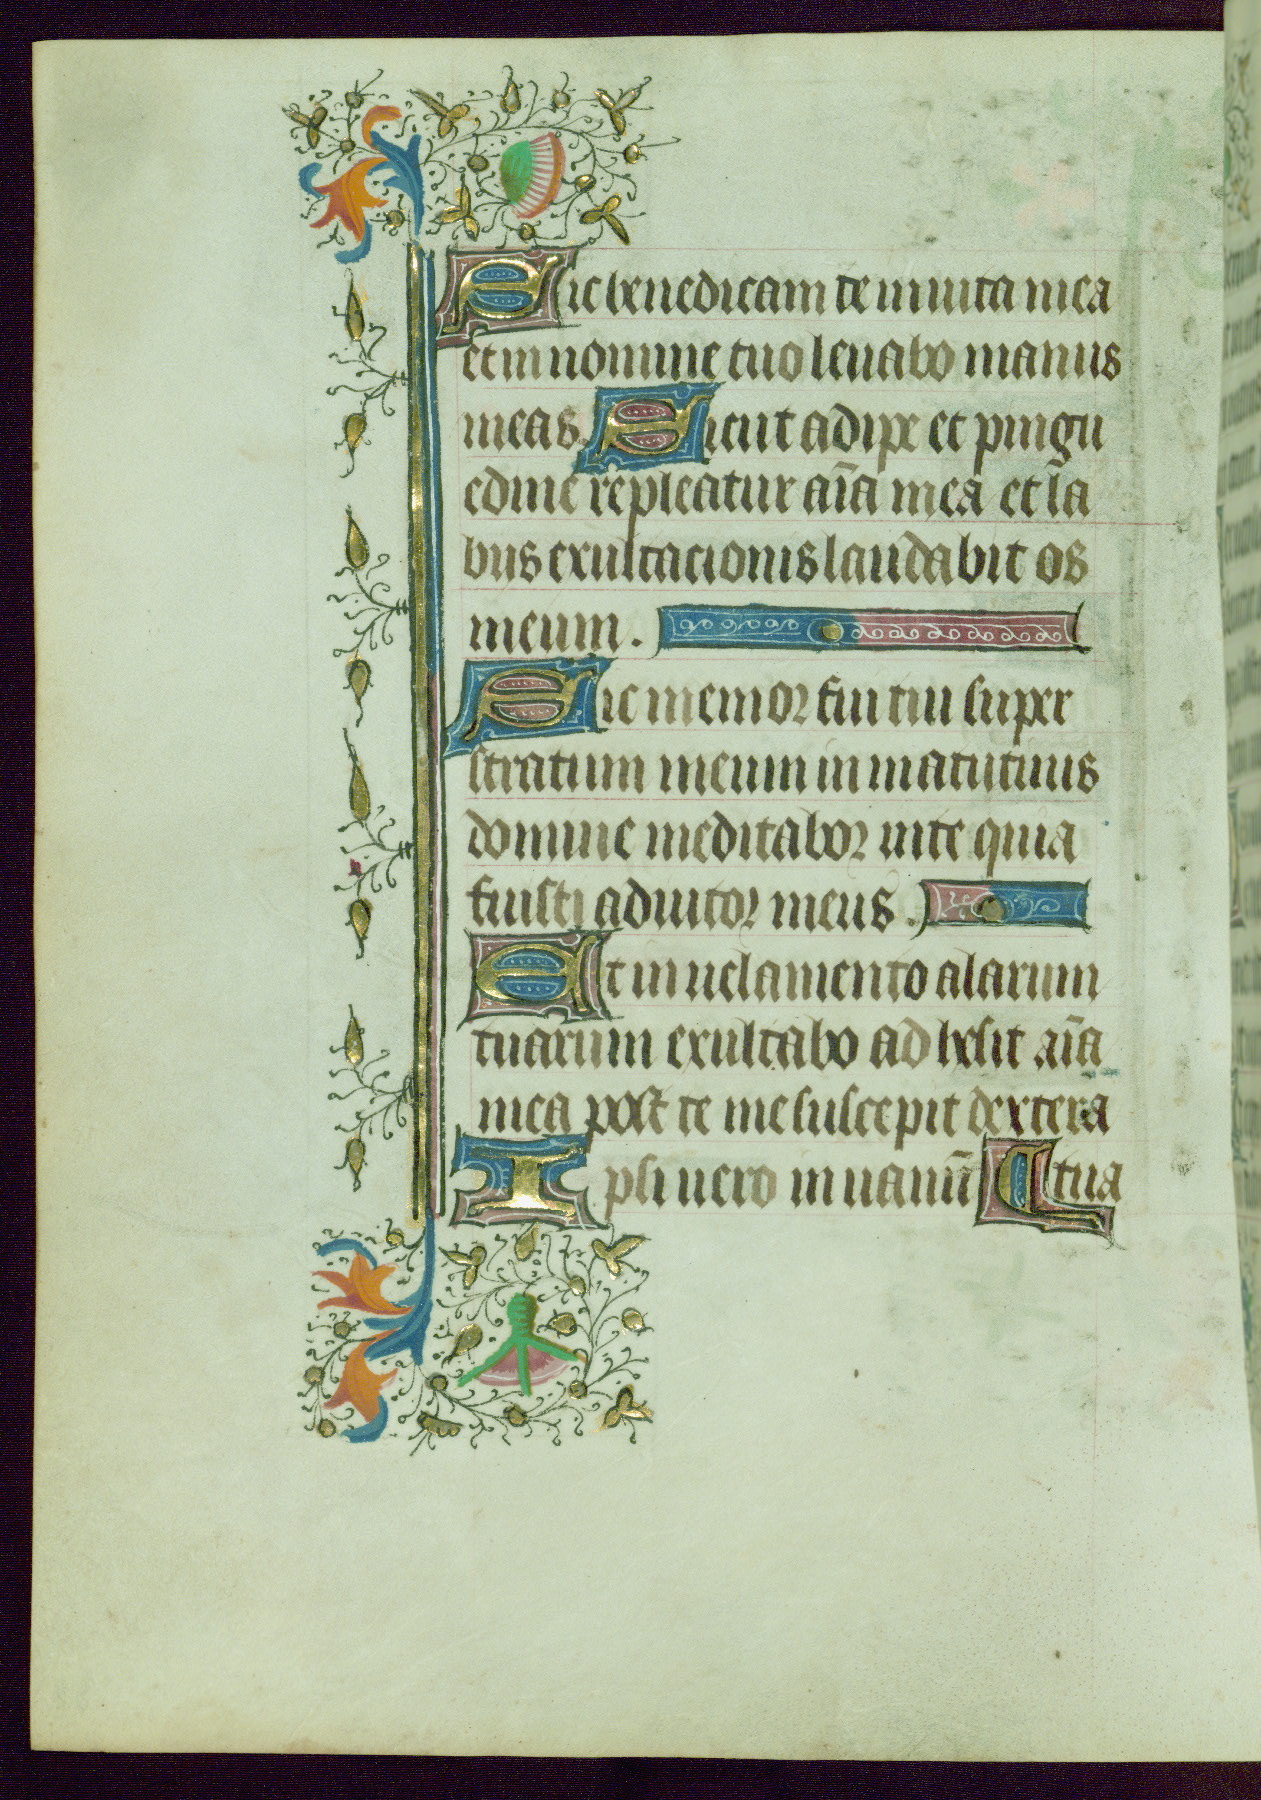 Sic benedicam te in uita mea
et in nomine tuo leuabo manus
meas. Sicut adipe et pingu
edine repleatur aīa mea et la
biis exultacionis laudabit os
meum.
Sic memor fui tui super
stratum meum in matutinis
domine meditabor in te quia
fuisti adiutor meus.
Et in uelamento alarum
tuarum exultabo adhesit aīa
mea post te me suscepit dextera
Ipsi uero in uanū ⁌ tua